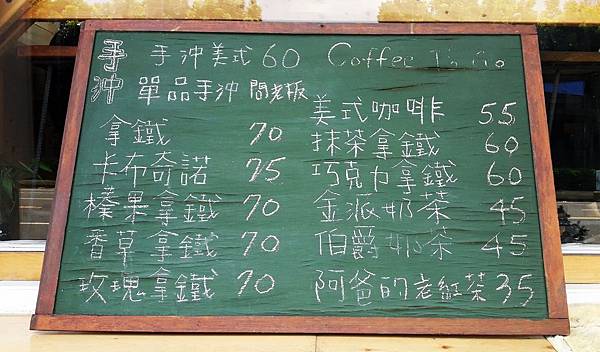 手沖
手沖美式 60
單品手沖 問老板
拿鐵 70
卡布奇諾 75
榛果拿鐵 70
香草拿鐵 70
玫瑰拿鐵 70
Coffee To Go
美式咖啡 55
抹茶拿鐵 60
巧克力拿鐵 60
金派奶茶 45
伯爵奶茶 45
阿爸的老紅茶 35